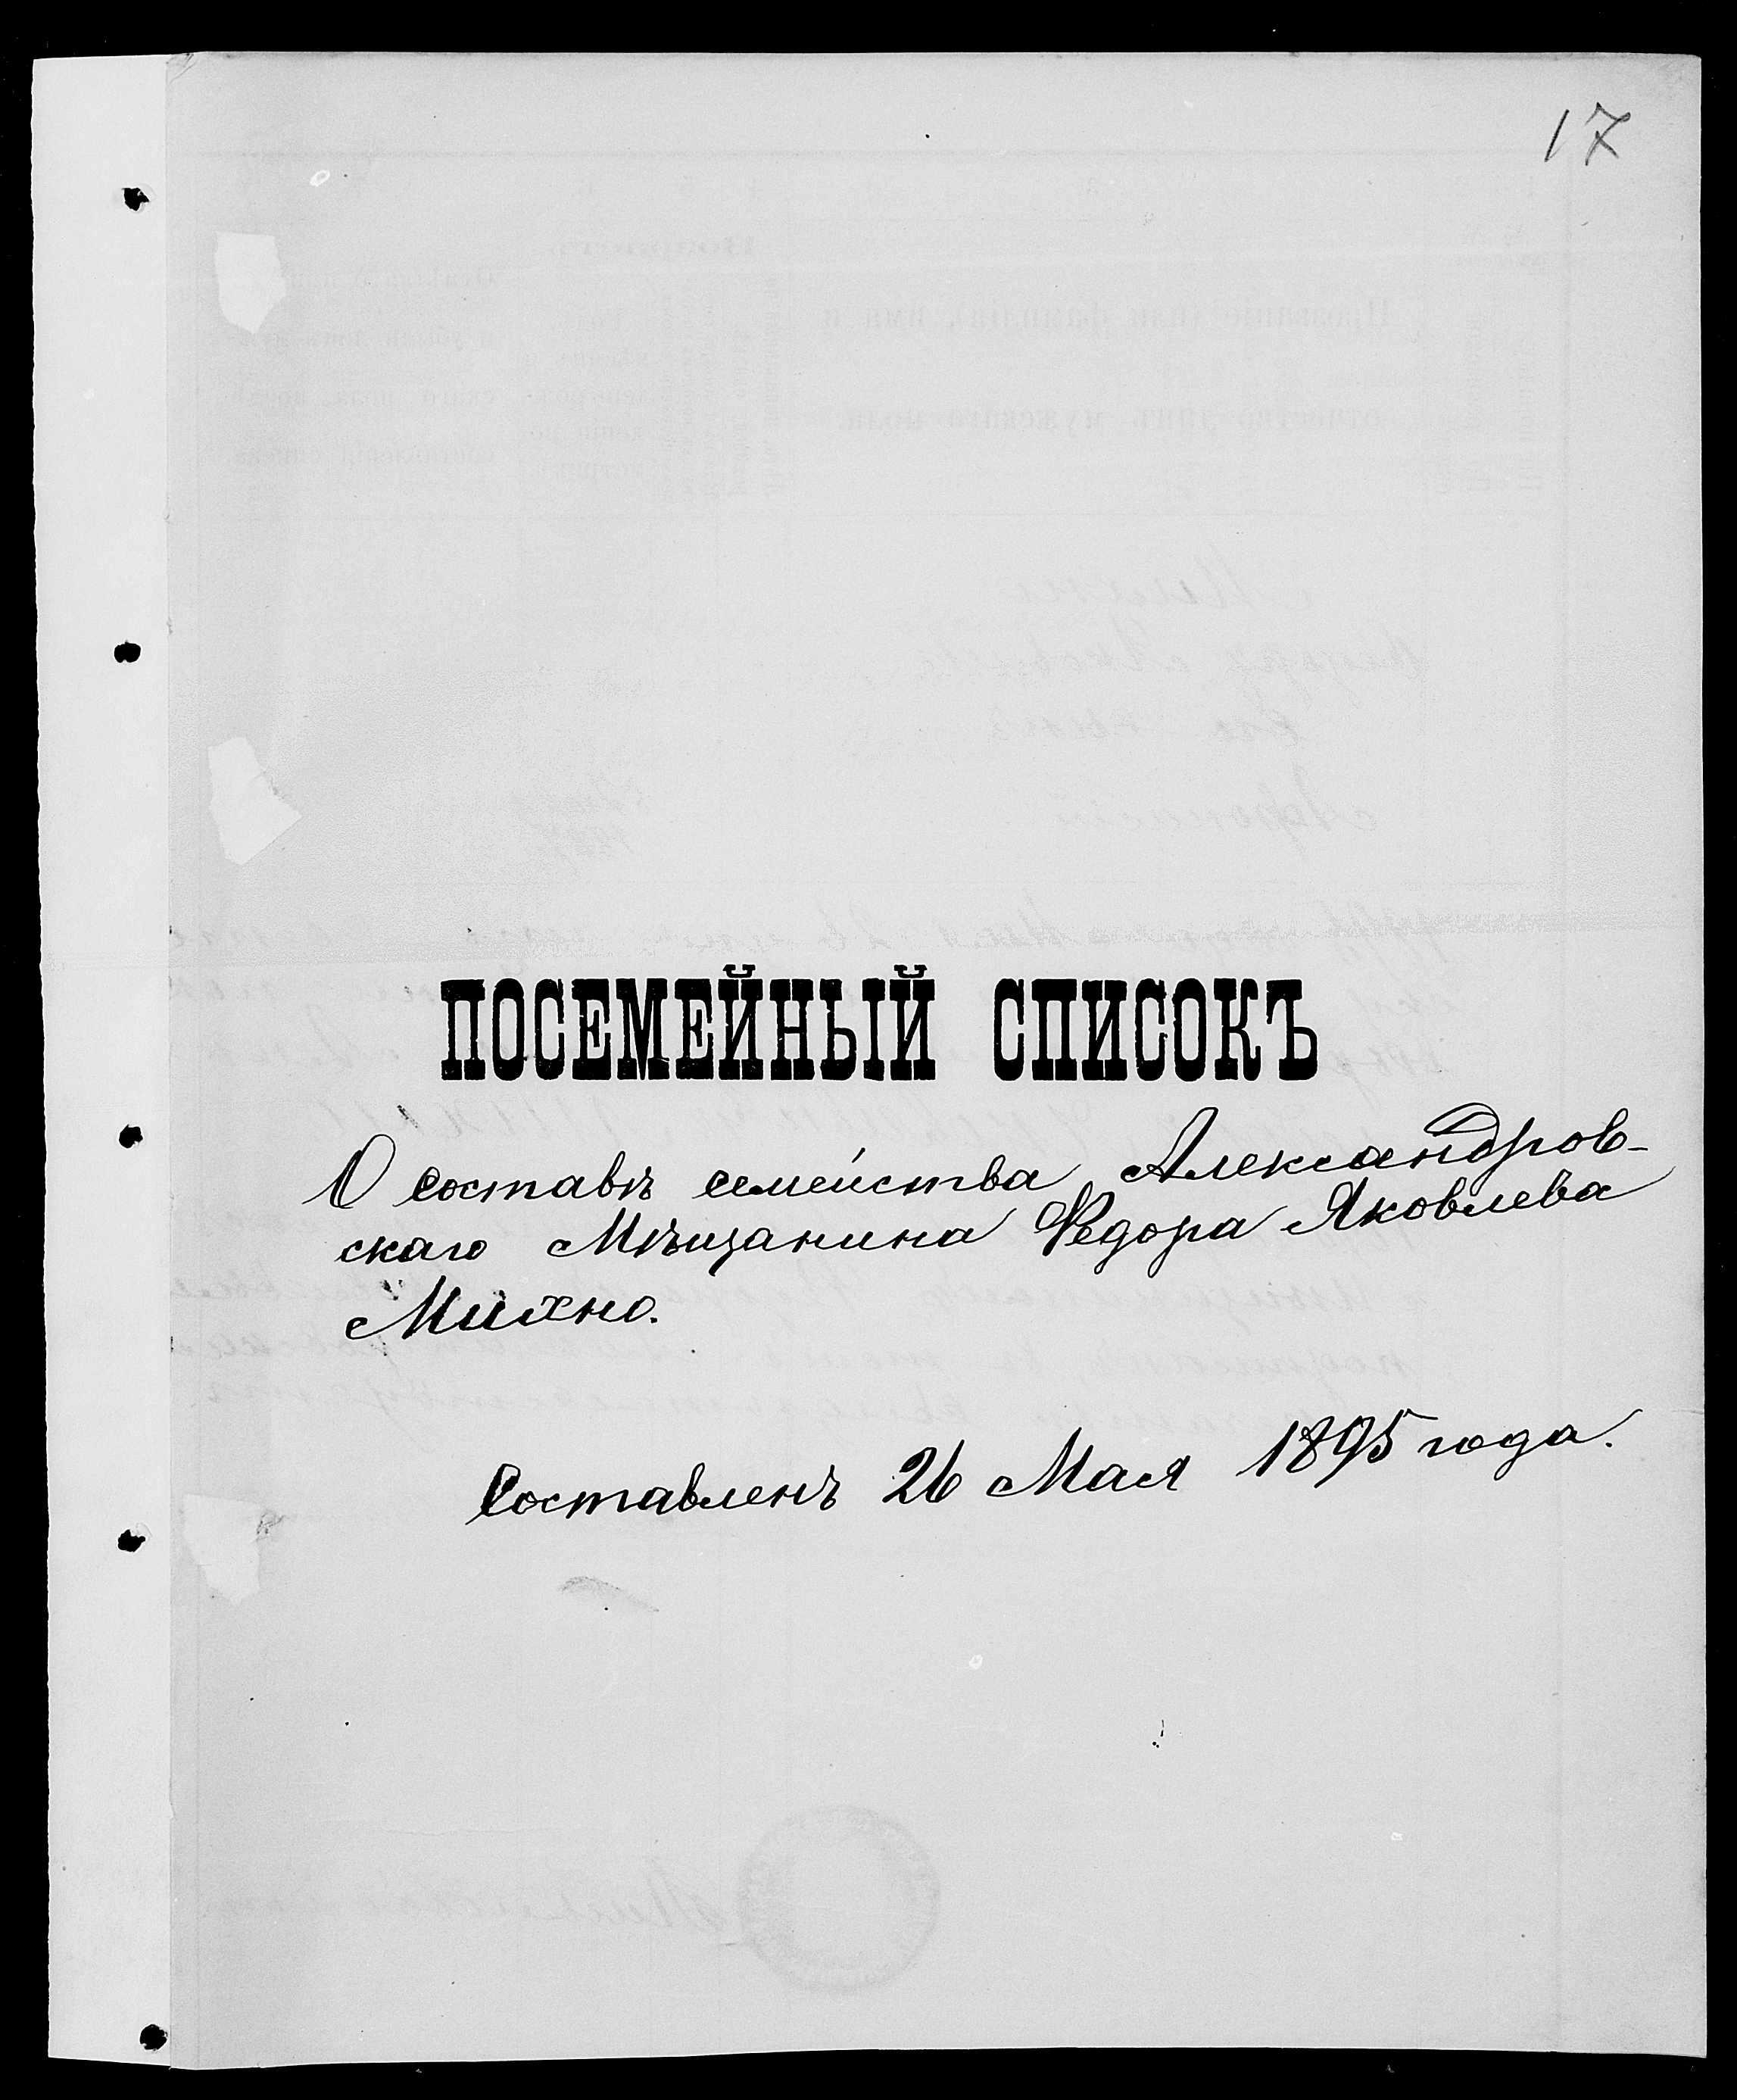 17
ПОСЕМЕЙНЫЙ СПИСОКЪ
О составѣ семейства Александров-
скаго Мѣщанина Ѳедора Яковлева
Михно.
Составленъ 26 Мая 1895 года.